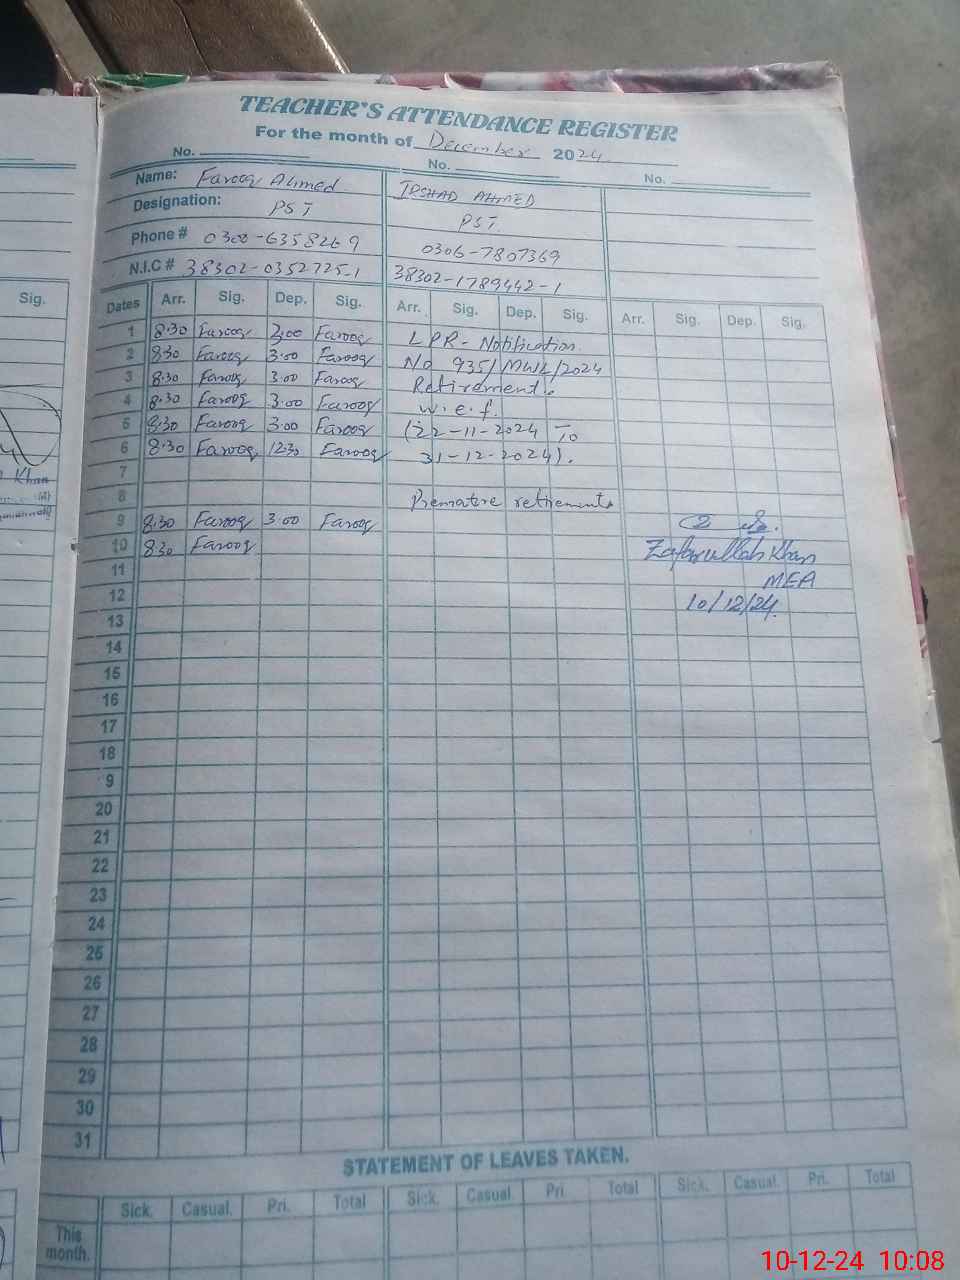 TEACHER'S ATTENDANCE REGISTER
For the month of December 2024
No. No. No.
Name: Farooq Ahmed IRSHAD AHMED
Designation: PST PST.
Phone # 0300-6358269 0306-7807369
N.I.C # 38302-0352725-1 38302-1789442-1
Sig.
Dates Arr. Sig. Dep. Sig. Arr. Sig. Dep. Sig. Arr. Sig. Dep. Sig.
1 8:30 Farooq 3:00 Farooq LPR-Notification.
2 8:30 Farooq 3:00 Farooq No 935/MWL/2024
3 8:30 Farooq 3:00 Farooq Retirement.
4 8:30 Farooq 3:00 Farooq w.e.f.
5 8:30 Farooq 3:00 Farooq (22-11-2024 To
6 8:30 Farooq 12:30 Farooq 31-12-2024).
Khan
7
8 Premature retirement.
9 8:30 Farooq 3:00 Farooq
10 8:30 Farooq Zafarullah Khan
11 MEA
12 10/12/24.
13
14
15
16
17
18
9
20
21
22
23
24
25
26
27
28
29
30
31
STATEMENT OF LEAVES TAKEN.
Sick. Casual. Pri. Total Sick. Casual. Pri. Total Sick. Casual. Pri. Total
This
month.
10-12-24 10:08